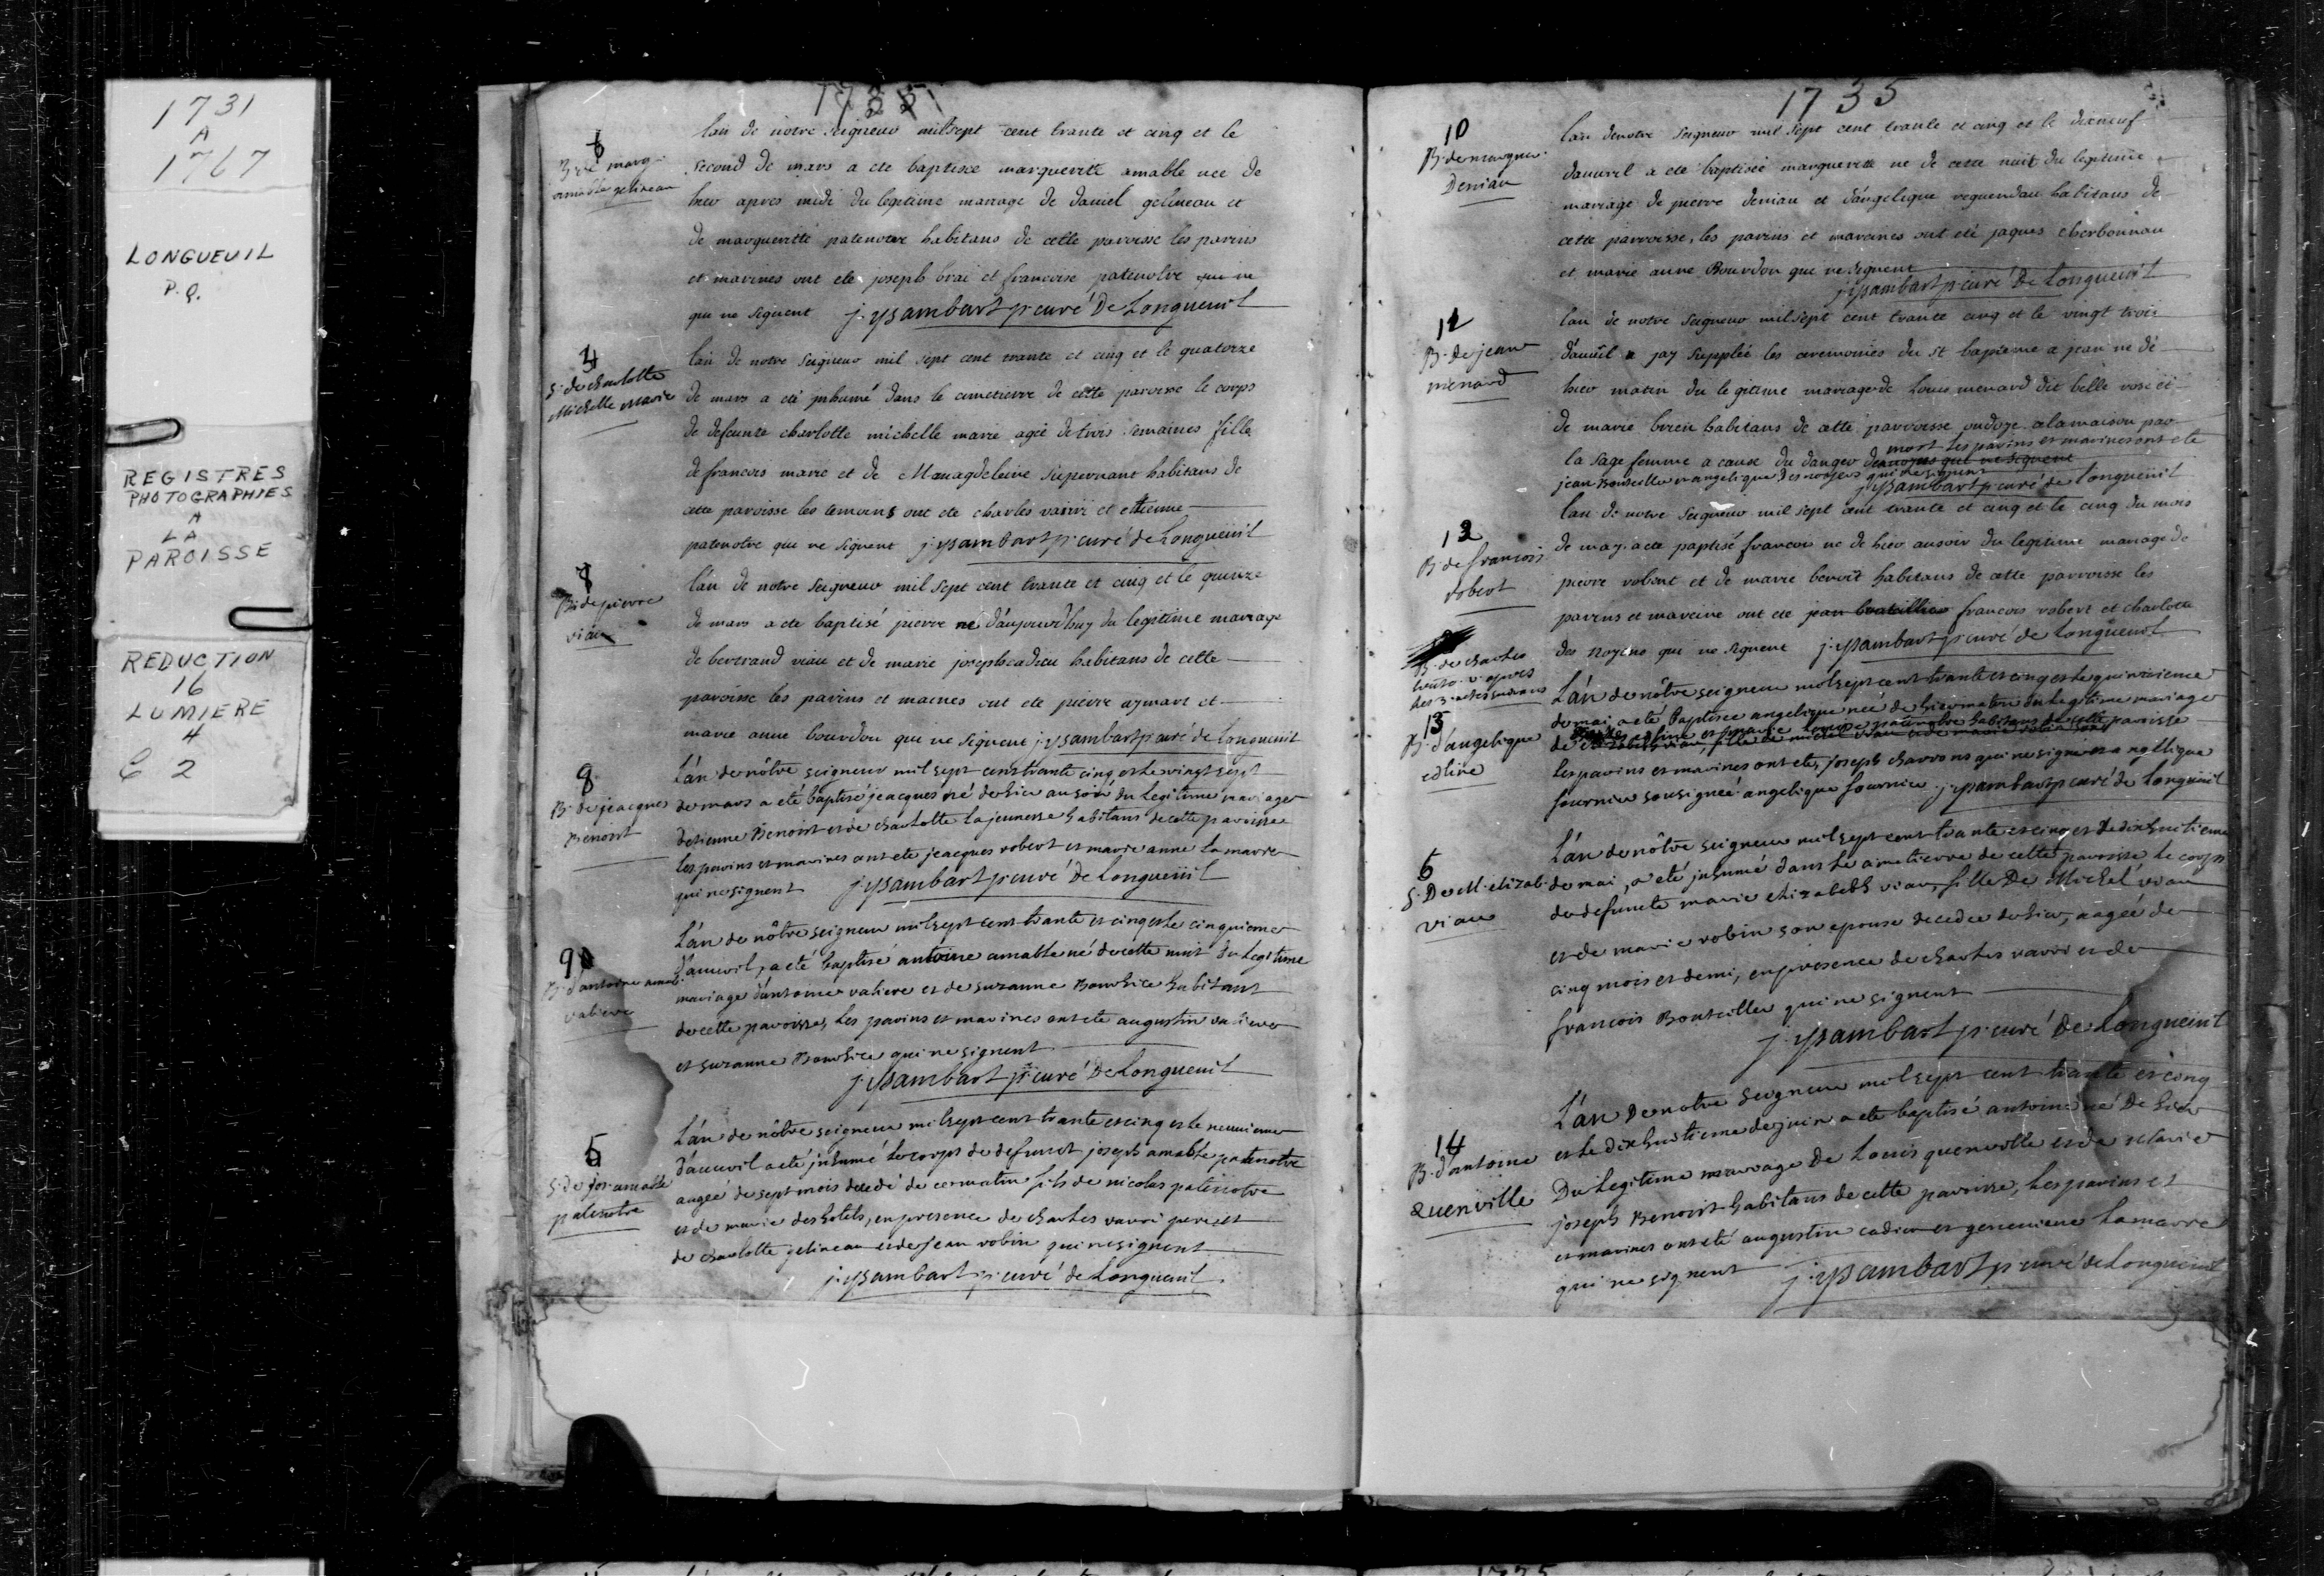 1731
A
1767
LONGUEUIL
P.Q.
REGISTRES
PHOTOGRAPHIES
A
LA
PAROISSE
REDUCTION
16
LUMIERE
4
C 2
1735
6
B. de marg.
amable gelineau
lan de notre seigneur mil sept cent trante et cinq et le
second de mars a ete baptisee marguerite amable nee de
hier apres midi du legitime mariage de daniel gelineau et
de margueritte patenotre habitans de cette paroisse les parins
et marines ont ete joseph brai et francoise patenotre qui ne
qui ne signent j. ysambart p. curé De Longueuil
4
S. de charlotte
Michelle Marie
lan de notre seigneur mil sept cent trante et cinq et le quatorze
de mars a eté inhumé dans le cimetierre de cette paroisse le corps
de defeunte charlotte michelle marie ageé de trois semaines fille
de francois marie et de Magdeleine habitans de
cette paroisse les temoins ont ete charles varri et ettienne
patenotre qui ne signent j. ysambart p. curé de Longueuil
7
B. de pierre
viau
l'an de notre seigneur mil sept cent trante et cinq et le quinze
de mars a ete baptisé pierre né d'aujourd'huy du legitime mariage
de bertrand viau et de marie joseph cadieu habitans de cette
paroisse les parins et maines ont ete pierre aymart et
marie anne bourdon qui ne signent j. ysambart p. curé de Longueuil
8
B. de jeacques
Benoist
L'án de nôtre seigneur mil sept cent trante cinq et le vingt sept
de mars a eté baptisé jeacques né de hier au soir du legitime mariage
detienne Benoist et de charlotte la jeunesse habitans de cette paroisse
les parins et marines ont ete jeacques robert et marie anne lamarre
qui ne signent j. ysambart p. curé De Longueuil
9
B. d'antoine amab.
valiere
L'án de nôtre seigneur mil sept cent trante et cinq et le cinquieme
d'auvril, a eté baptisé antoine amable né de cette nuit du legitime
mariage d'antoine valiere et de suzanne Bourhice habitant
de cette paroisse, les parins et marines ont ete augustin valiere
et suzanne Bourhice qui ne signent
j. ysambart p. curé De Longueuil
5
S. de jos. amable
patenotre
L'án de nôtre seigneur mil sept cent trante et cinq et le neuvieme
d'auvril a eté inhumé le corps de defunct joseph amable patenotre
aageé de sept mois decedé de ce matin fils de nicolas patenotre
et de marie deshotels, en presence de charles varri pere et
de charlotte gelineau et de jean robin qui ne signent
j. ysambart p. curé de Longueuil
1735
10
B. de margue.
Deniau
lan de notre seigneur mil sept cent trante et cinq et le dixneuf
dauvril a ete baptiseé marguerite ne de cette nuit du legitime
mariage de pierre deniau et d'angelique habitans de
cette parroisse, les parins et maraines ont eté jaques cherbonnau
et marie anne Bourdon que ne signent
j. ysambart p. curé De Longueuil
11
B. de jean
menard
lan de notre seigneur mil sept cent trante cinq et le vingt trois
d'auvril jay suppleé les ceremonies du st bapteme a jean ne de
hier matin du legitime mariage de louis menard dit belle rose et
de marie habitans de cette parroisse ondoye a la maison par
la sage femme a cause du danger de mort les parins et marines ont ete
jean Bouteiller et angelique des noyers qui ne signent
j. ysambart p. curé de Longueuil
12
B. de francois
robert
lan de notre seigneur mil sept cent trante et cinq et le cinq du mois
de may a ete baptisé francois ne de hier au soir du legitime mariage de
pierre robert et de marie benoit habitans de cette parroisse les
parins et maraine ont ete jean bouteillier francois robert et charlotte
des noyers qui ne signent j. ysambart p. curé de Longueuil
B. de charles
v. apres
les 3 actes suivans
13
B. d'angelique
edline
L'án de nôtre seigneur mil sept cent trante et cinq et le quinzieme
de mai, a eté baptisee angelique neé de hier matin du legitime mariage
de edline et marie louise patenotre habitans de cette paroisse
les parins et marines ont ete, joseph charrons qui ne signe et angelique
fournier sousigneé angelique fournier j. ysambart p. curé de Longueuil
6
S. De M. elizab.
viau
L'án de nôtre seigneur mil sept cent trante et cinq et le dixhuitieme
de mai, a eté inhumé dans le cimetierre de cette paroisse le corps
de defuncte marie elizabeth viau, fille De Michel viau
et de marie robin son epouse decedeé de hier, aageé de
cinq mois et demi, en presence de charles varri et de
francois Bouteiller qui ne signent
j. ysambart p. curé De Longueuil
14
B. d'antoine
Quenville
L'án De notre seigneur mil sept cent trante et cinq
et le dixhuitieme de juin a ete baptisé antoine né De hier
Du legitime marriage De Louis quenville et de Marie
joseph Benoist habitans de cette paroisse, les parins et
et marines ont eté augustin cadieu et genevieve lamarre
qui ne signent j. ysambart p. curé de Longueuil